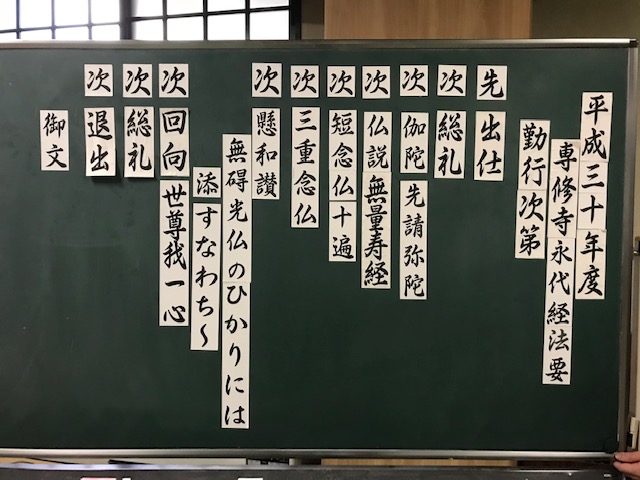 平成三十年度
専修寺永代経法要
勤行次第
先 出仕
次 総礼
次 伽陀 先請弥陀
次 仏説無量寿経
次 短念仏十遍
次 三重念仏
次 懸和讃
無碍光仏のひかりには
添 すなわち〜
次 回向 世尊我一心
次 総礼
次 退出
御文